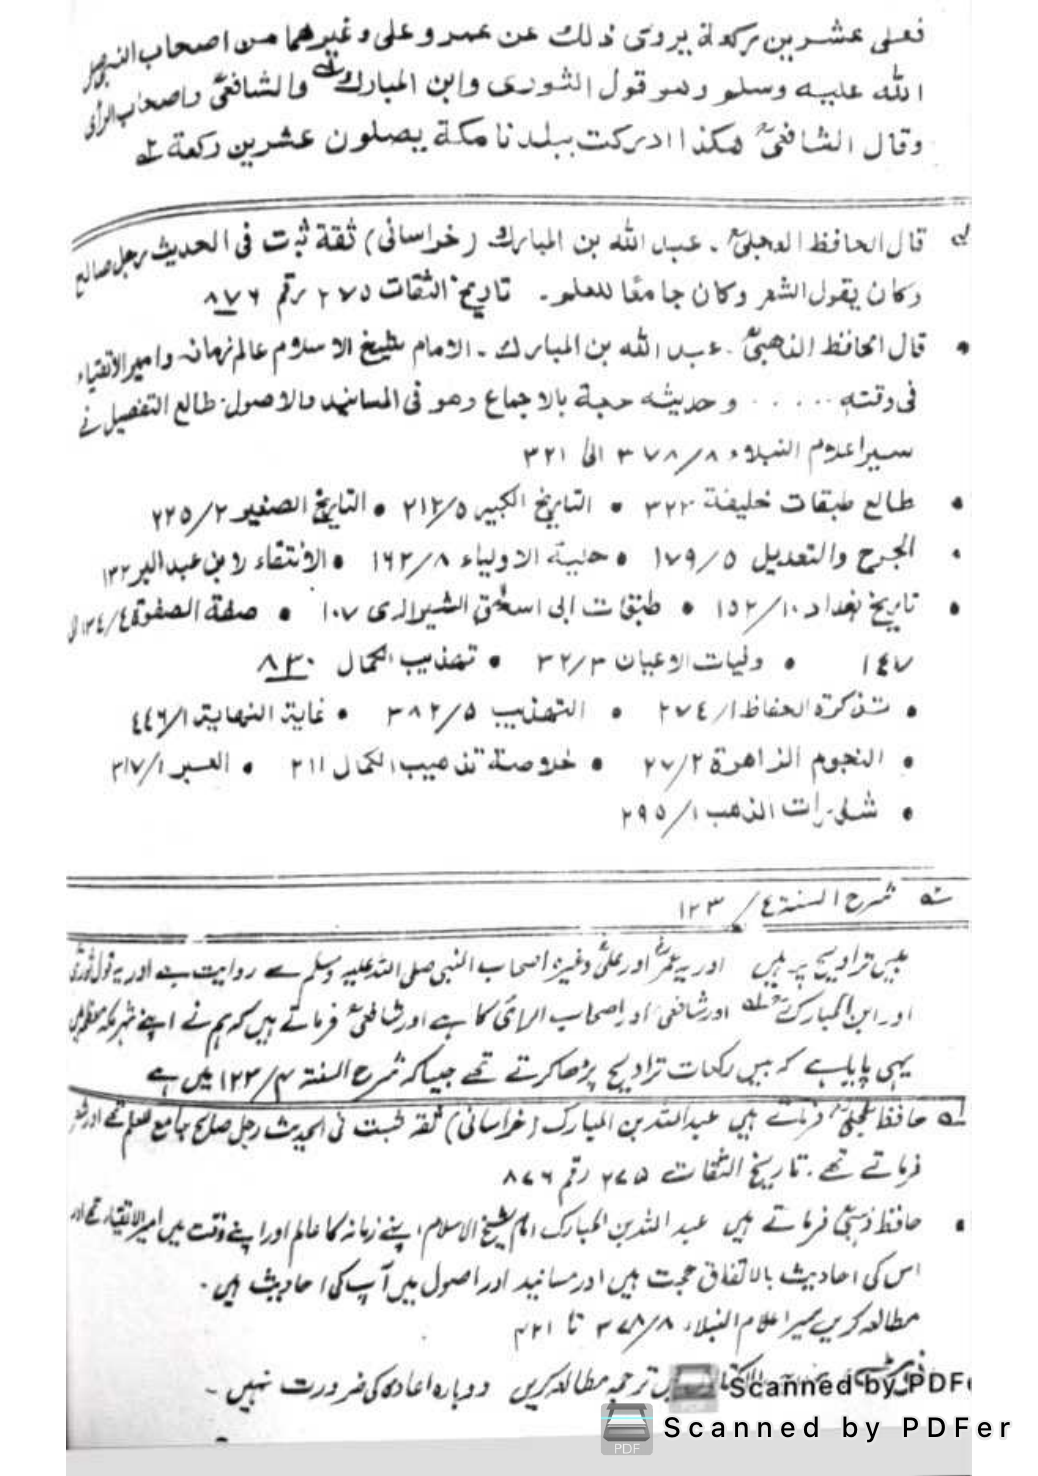 فعلى عشرين ركعة يروى ذلك عن عمر وعلى وغيرهما من اصحاب النبى صلى
الله عليه وسلم وهو قول الثورى وابن المبارك والشافعىؒ واصحاب الرأى
وقال الشافعىؒ هكذا ادركت ببلدنا مكة يصلون عشرين ركعة
قال الحافظ العجلىؒ ۔ عبد الله بن المبارك (خراسانى) ثقة ثبت فى الحديث رجل صالح
وكان يقول الشعر وكان جامعًا للعلم ۔ تاريخ الثقات ٢٧٥ رقم ٨٧٦
• قال الحافظ الذهبىؒ ۔ عبد الله بن المبارك ۔ الامام شيخ الاسلام عالم زمانه وامير الاتقياء
فى وقته ..... وحديثه حجة بالاجماع وهو فى المسانيد والاصول ۔ طالع التفصيل فى
سير اعلام النبلاء ٣٧٨/٨ الى ٣٢١
• طالع طبقات خليفة ٣٢٣ • التاريخ الكبير ٢١٢/٥ • التاريخ الصغير ٢٢٥/٢
• الجرح والتعديل ١٧٩/٥ • حلية الاولياء ١٦٢/٨ • الانتقاء لابن عبد البر ١٣٢
• تاريخ بغداد ١٥٢/١٠ • طبقات ابى اسحٰق الشيرازى ١٠٧ • صفة الصفوة ١٣٤/٤ الى
١٤٧ • وفيات الاعيان ٣٢/٣ • تهذيب الكمال ٨٣٠
• تذكرة الحفاظ ٢٧٤/١ • التهذيب ٣٨٢/٥ • غاية النهاية ٤٤٦/١
• النجوم الزاهرة ٢٧/٢ • خلاصة تذهيب الكمال ٢١١ • العبر ٣١٧/١
• شذرات الذهب ٢٩٥/١
شرح السنة ٤/ ١٢٣
بیس تراویح پر ہیں اور یہ عمرؓ اور علیؓ وغیرہ اصحاب النبی صلی اللہ علیہ وسلم سے روایت ہے اور یہ قول ثوریؒ
اور ابن المبارکؒ اور شافعیؒ اور اصحاب الرائی کا ہے اور شافعیؒ فرماتے ہیں کہ ہم نے اپنے شہر مکہ معظمہ میں
یہی پایا ہے کہ بیس رکعات تراویح پڑھا کرتے تھے جیسا کہ شرح السنۃ ۴/۱۲۳ میں ہے
حافظ عجلیؒ فرماتے ہیں عبد اللہ بن المبارک (خراسانی) ثقہ ثبت فی الحدیث رجل صالح جامع للعلم تھے اور شعر
فرماتے تھے۔ تاریخ الثقات ۲۷۵ رقم ۸۷۶
• حافظ ذہبیؒ فرماتے ہیں عبد اللہ بن المبارک امام شیخ الاسلام، اپنے زمانہ کا عالم اور اپنے وقت میں امیر الاتقیاء تھے اور
اس کی احادیث بالاتفاق حجت ہیں اور مسانید اور اصول میں آپ کی احادیث ہیں۔
مطالعہ کریں سیر اعلام النبلاء ۳۷۸/۸ تا ۴۲۱
ترجمہ مطالعہ کریں دوبارہ اعادہ کی ضرورت نہیں۔
Scanned by PDFe
Scanned by PDFer
PDF